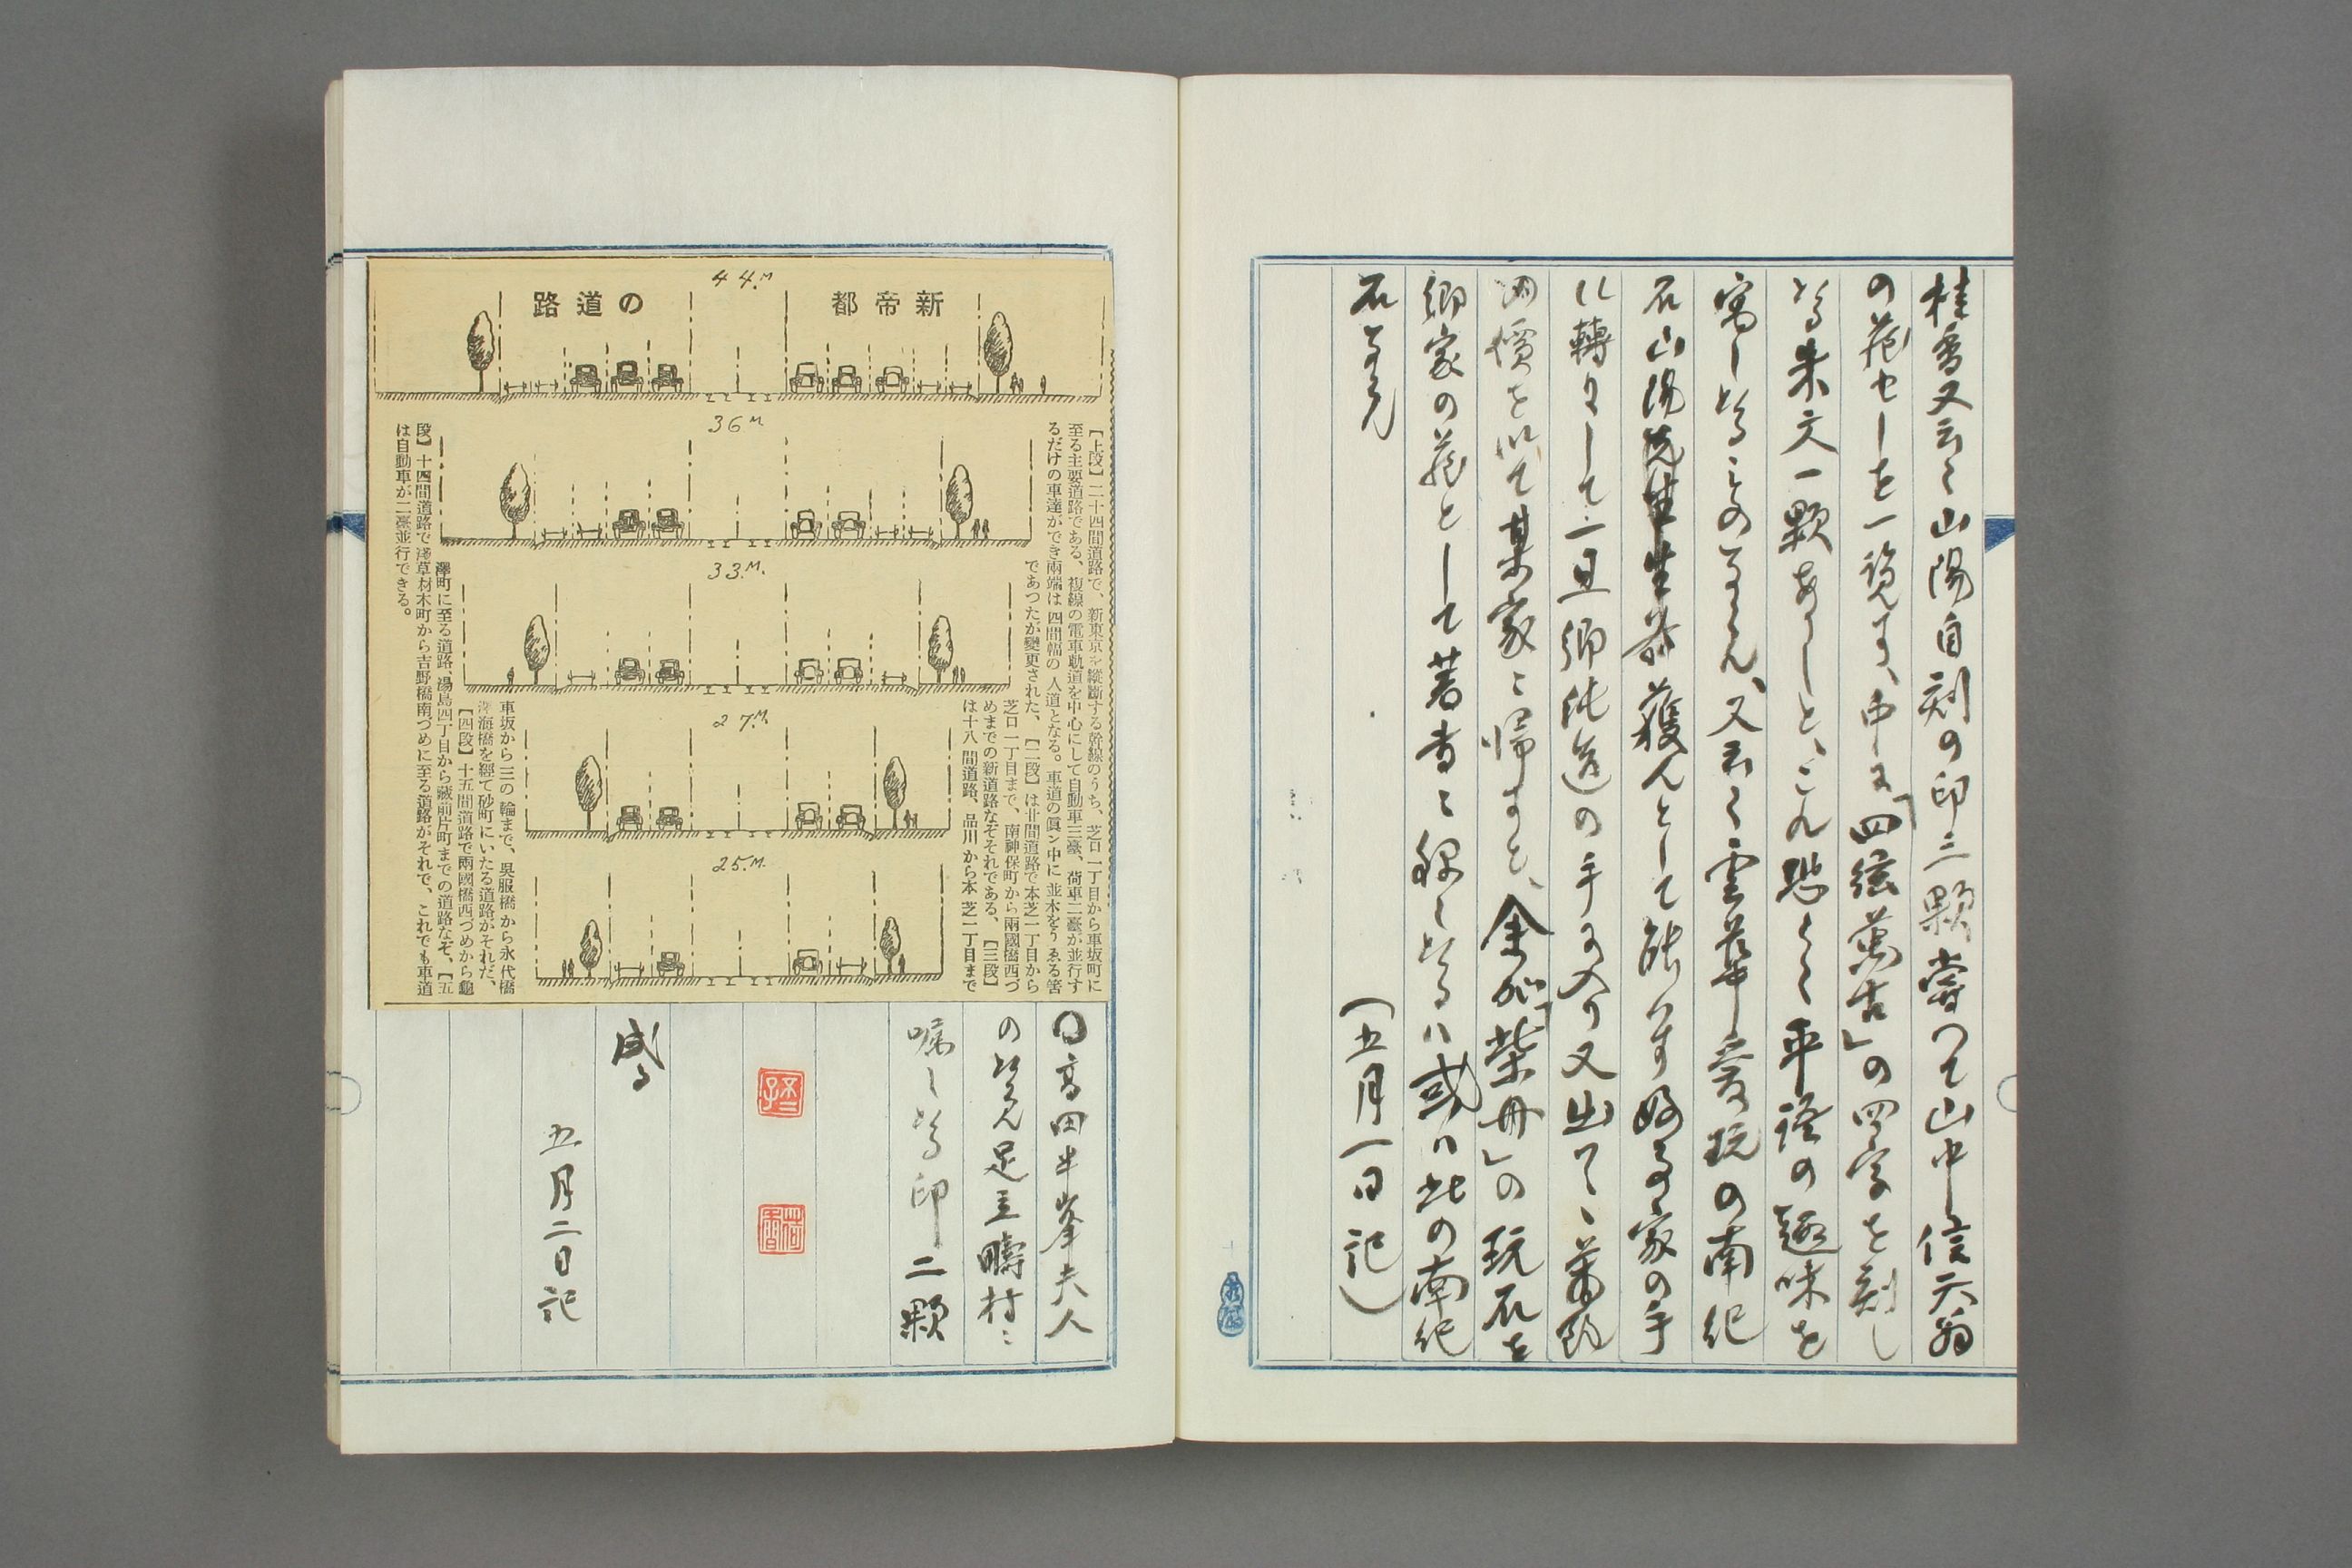 桂香又云く山陽自刻の印三顆嘗つて山中信天翁
の蔵せしを一覧す、中に「四弦萬古」の四字を刻し
たる朱文一顆ありしと、これ恐らく平語の趣味を
寓したるものならん、又云く雲華愛玩の南紀
石山陽 獲んとして能はず 家の手
に轉々して一旦郷純造の手に入り又出てゝ
価を以て某家に帰すと、余が「柴舟」の玩石を
郷家の蔵として著書に録したるは或は此の南紀
石ならん
(五月一日記)
44.M
新帝都の道路
36M
33.M.
27.M.
25.M.
【上段】二十四間道路で、新東京を縱斷する幹線のうち、芝口一丁目から車坂町に
至る主要道路である、複線の電車軌道を中心にして自動車三臺、荷車二臺が並行す
るだけの車道ができ兩端は四間幅の人道となる。車道の眞ン中に並木をうゑる筈
であつたが變更された、【二段】は廿間道路で本芝一丁目から
芝口一丁目まで、南神保町から兩國橋西づ
めまでの新道路なぞそれである、【三段】
は十八間道路、品川から本芝一丁目まで
車坂から三の輪まで、呉服橋から永代橋
深海橋を經て砂町にいたる道路がそれだ、
【四段】十五間道路で兩國橋西づめから龜
澤町に至る道路、湯島四丁目から藏前片町までの道路なぞ、【五
段】十四間道路で淺草材木町から吉野橋南づめに至る道路がそれで、これでも車道
は自動車が二臺並行できる。
〇高田半峯夫人
の 足立疇村に
嘱したる印二顆
成る
五月二日記